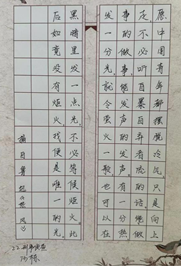 愿中国青年都摆脱冷气只是向上
走不必听自暴自弃者流的话能做
事的做事能发声的发声有一分热
发一分光就令萤火一般也可以在
黑暗里发一点光不必等候炬火此
后如竟没有炬火我便是唯一的光
摘自鲁迅《热风》